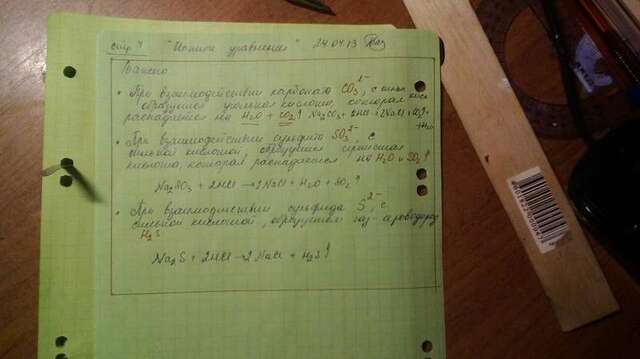 стр 4 "Ионные уравнения" 24.04.13
Важно
• При взаимодействии карбоната CO₃²⁻, с сильн. кисл.
образуется угольная кислота, которая
распадается на H₂O + CO₂↑ Na₂CO₃ + 2HCl → 2NaCl + CO₂↑
+H₂O
• При взаимодействии сульфита SO₃²⁻, с
сильной кислотой, образуется сернистая
кислота, которая распадается на H₂O и SO₂↑
Na₂SO₃ + 2HCl → 2NaCl + H₂O + SO₂↑
• При взаимодействии сульфида S²⁻, с
сильной кислотой, образуется газ - сероводород
H₂S
Na₂S + 2HCl → 2NaCl + H₂S↑